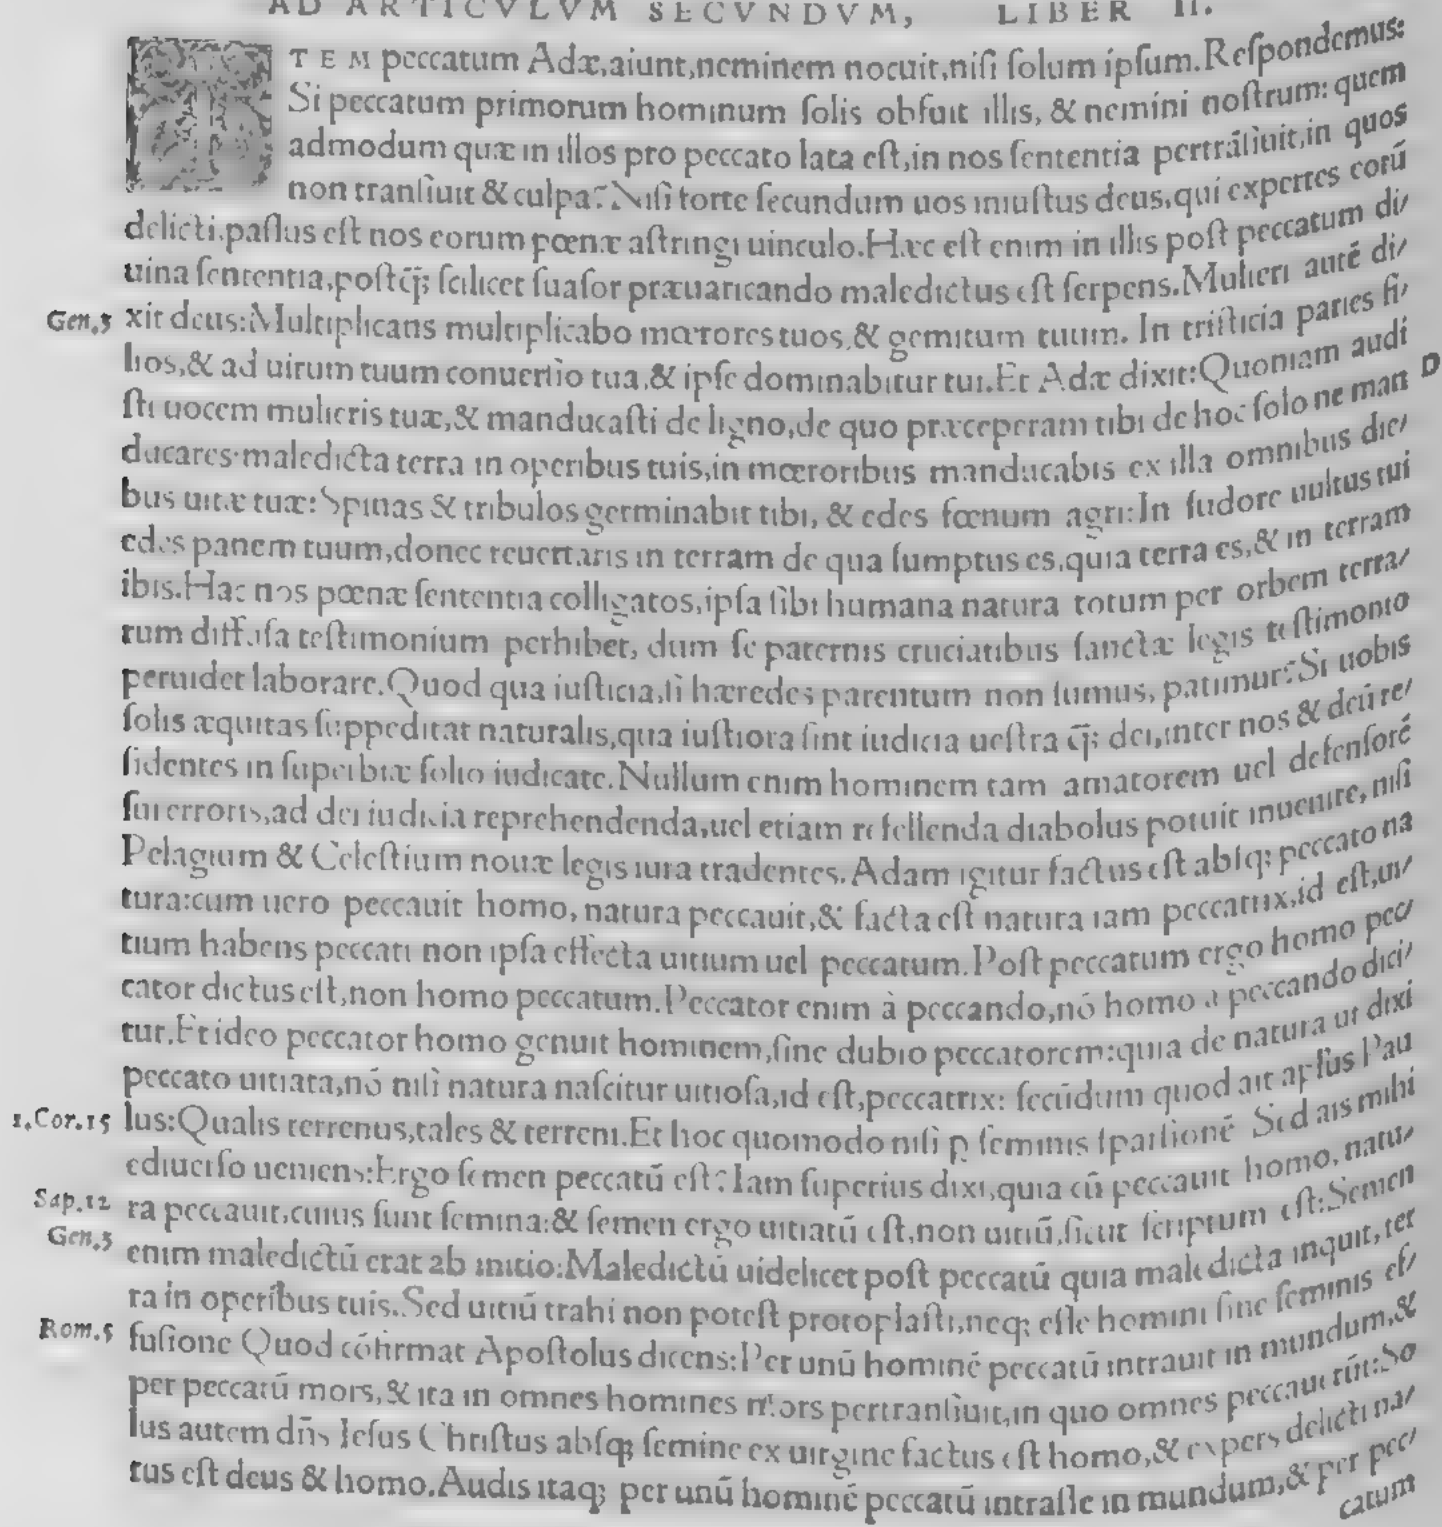 AD ARTICVLVM SECVNDVM, LIBER II.
ITEM peccatum Adæ, aiunt, neminem nocuit, niſi ſolum ipſum. Reſpondemus:
Si peccatum primorum hominum ſolis obfuit illis, & nemini noſtrum: quem
admodum quæ in illos pro peccato lata eſt, in nos ſententia pertrāſiuit, in quos
non tranſiuit & culpa? Niſi forte ſecundum uos iniuſtus deus, qui expertes eorū
delicti, paſſus eſt nos eorum pœnæ aſtringi uinculo. Hæc eſt enim in illis poſt peccatum di/
uina ſententia, poſtq̄; ſcilicet ſuaſor præuaricando maledictus eſt ſerpens. Mulieri autē di/
Gen.3 xit deus: Multiplicans multiplicabo mœrores tuos, & gemitum tuum. In triſticia paries fi/
lios, & ad uirum tuum conuerſio tua, & ipſe dominabitur tui. Et Adæ dixit: Quoniam audi D
ſti uocem mulieris tuæ, & manducaſti de ligno, de quo præceperam tibi de hoc ſolo ne man
ducares· maledicta terra in operibus tuis, in mœroribus manducabis ex illa omnibus die/
bus uitæ tuæ: Spinas & tribulos germinabit tibi, & edes fœnum agri: In ſudore uultus tui
edes panem tuum, donec reuertaris in terram de qua ſumptus es, quia terra es, & in terram
ibis. Hac nos pœnæ ſententia colligatos, ipſa ſibi humana natura totum per orbem terra/
rum diffuſa teſtimonium perhibet, dum ſe paternis cruciatibus ſanctæ legis teſtimonio
peruidet laborare. Quod qua iuſticia, ſi hæredes parentum non ſumus, patimur? Si uobis
ſolis æquitas ſuppeditat naturalis, qua iuſtiora ſint iudicia ueſtra q̄; dei, inter nos & deū re/
ſidentes in ſuperbiæ ſolio iudicate. Nullum enim hominem tam amatorem uel defenſorē
ſui erroris, ad dei iudicia reprehendenda, uel etiam refellenda diabolus potuit inuenire, niſi
Pelagium & Celeſtium nouæ legis iura tradentes. Adam igitur factus eſt abſq; peccato na
tura: cum uero peccauit homo, natura peccauit, & facta eſt natura iam peccatrix, id eſt, ui/
tium habens peccati non ipſa effecta uitium uel peccatum. Poſt peccatum ergo homo pec/
cator dictus eſt, non homo peccatum. Peccator enim à peccando, nō homo à peccando dici/
tur. Et ideo peccator homo genuit hominem, ſine dubio peccatorem: quia de natura ut dixi
peccato uitiata, nō niſi natura naſcitur uitioſa, id eſt, peccatrix: ſecūdum quod ait apſus Pau
1.Cor.15 lus: Qualis terrenus, tales & terreni. Et hoc quomodo niſi p̱ ſeminis ſparſionē Sed ais mihi
ediuerſo ueniens: Ergo ſemen peccatū eſt? Iam ſuperius dixi, quia cū peccauit homo, natu/
Sap.12 ra peccauit, cuius ſunt ſemina: & ſemen ergo uitiatū eſt, non uitiū, ſicut ſcriptum eſt: Semen
Gen.3 enim maledictū erat ab initio: Maledictū uidelicet poſt peccatū quia maledicta inquit, ter
ra in operibus tuis. Sed uitiū trahi non poteſt protoplaſti, neq; eſſe homini ſine ſeminis ef/
Rom.5 fuſione Quod cōfirmat Apoſtolus dicens: Per unū hominē peccatū intrauit in mundum, &
per peccatū mors, & ita in omnes homines mors pertranſiuit, in quo omnes peccauerūt: So
lus autem dn̄s Ieſus Chriſtus abſq; ſemine ex uirgine factus eſt homo, & expers delicti na/
tus eſt deus & homo. Audis itaq; per unū hominē peccatū intraſſe in mundum, & per pec/
catum